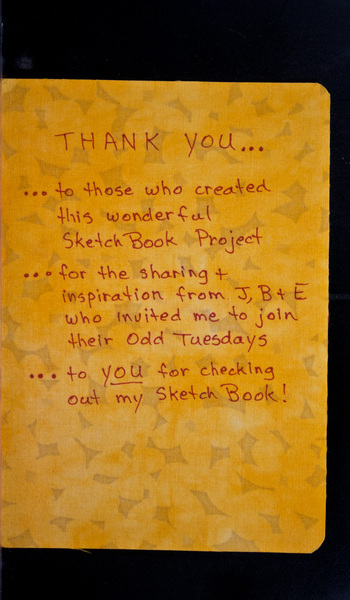 THANK YOU...
... to those who created
this wonderful
SketchBook Project
... for the sharing +
inspiration from J, B + E
who invited me to join
their Odd Tuesdays
... to you for checking
out my SketchBook!